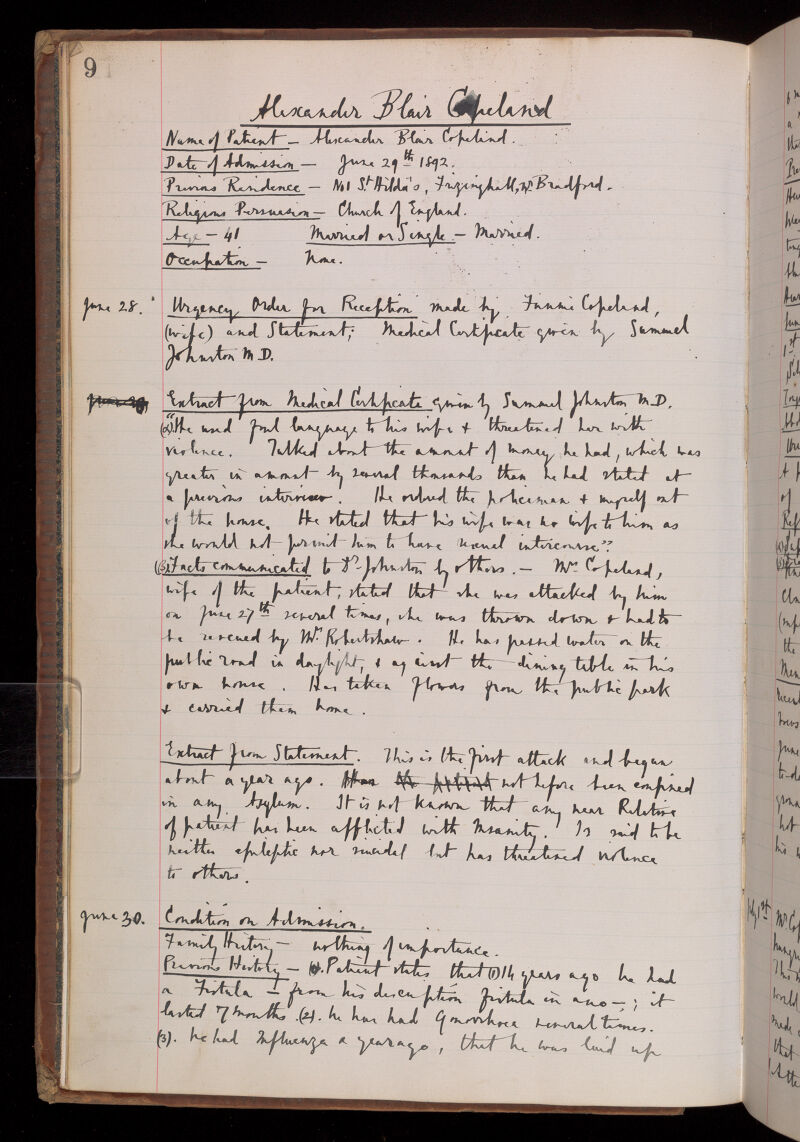 9
Alexander Blair Copeland
Name of Patient – Alexander Blair Copeland.
Date of Admission – June 29th 1892.
Previous Residence – No 1 St Hilda's, Frizinghall, nr Bradford.
Religious Persuasion – Church of England.
Age – 41 Married or Single – Married.
Occupation – None.
June 28. Urgency Order for Reception made by Fannie Copeland,
(wife) and Statement; Medical Certificate given by Sammel
Johnston M.D.
Extract from Medical Certificate given by Sammel Johnston M.D.
(a) "He used foul language to his wife & threatened her with
violence. Talked about the amount of money he had, which was
greater in amount by several thousands than he had stated at
a previous interview. He ordered the policeman & myself out
of the house. He stated that his wife was no wife to him as
she would not permit him to have sexual intercourse".
(b) Facts communicated to Dr Johnston by others. – Mrs Copeland,
wife of the patient, stated that she was attacked by him
on June 27th several times, she was thrown down & had to
be rescued by Mr Robertshaw. He has passed water on the
public road in daylight, & against the dining table in his
own house. Has taken flowers from the public park
& carried them home.
Extract from Statement. This is the first attack and began
about a year ago. not before been confined
in any Asylum. It is not known that any near Relative
of patient has been afflicted with Insanity. Is said to be
neither epileptic nor suicidal but has threatened violence
to others.
June 30. Condition on Admission.
Family History – nothing of importance.
Previous History – Patient states that (1) 14 years ago he had
a Fistula – from his description fistula in ano –; it
lasted 7 months. (2). he has had Gonorrhoea several times.
(3). he had Influenza a year ago, that he was laid up